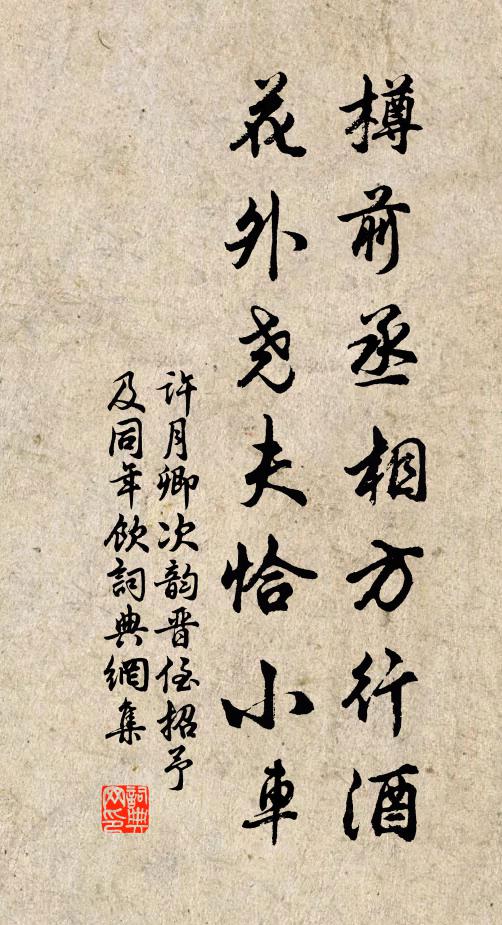 樽前丞相方行酒
花外尧夫恰小車
许月卿次韵晋侄招予
及同年飲詞典網集
詞典
网印